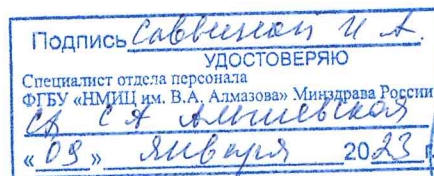 Подпись Саввиной И А.
УДОСТОВЕРЯЮ
Специалист отдела персонала
ФГБУ «НМИЦ им. В.А. Алмазова» Минздрава России
СА
«09» января 2023 г